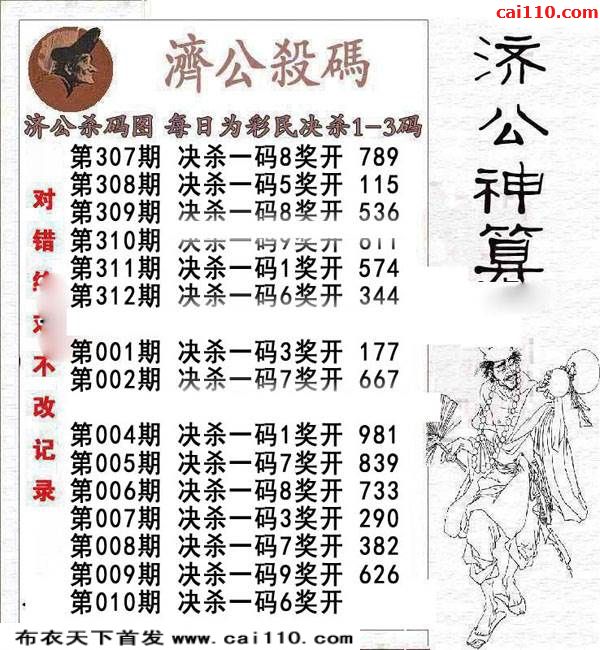 cai110.com
濟公殺碼
济公神算
济公杀码图 每日为彩民决杀1-3码
对错 不改记录
第307期 决杀一码8奖开 789
第308期 决杀一码5奖开 115
第309期 决杀一码8奖开 536
第310期 决杀一码9奖开 611
第311期 决杀一码1奖开 574
第312期 决杀一码6奖开 344
第001期 决杀一码3奖开 177
第002期 决杀一码7奖开 667
第004期 决杀一码1奖开 981
第005期 决杀一码7奖开 839
第006期 决杀一码8奖开 733
第007期 决杀一码3奖开 290
第008期 决杀一码7奖开 382
第009期 决杀一码9奖开 626
第010期 决杀一码6奖开
布衣天下首发 www.cai110.com